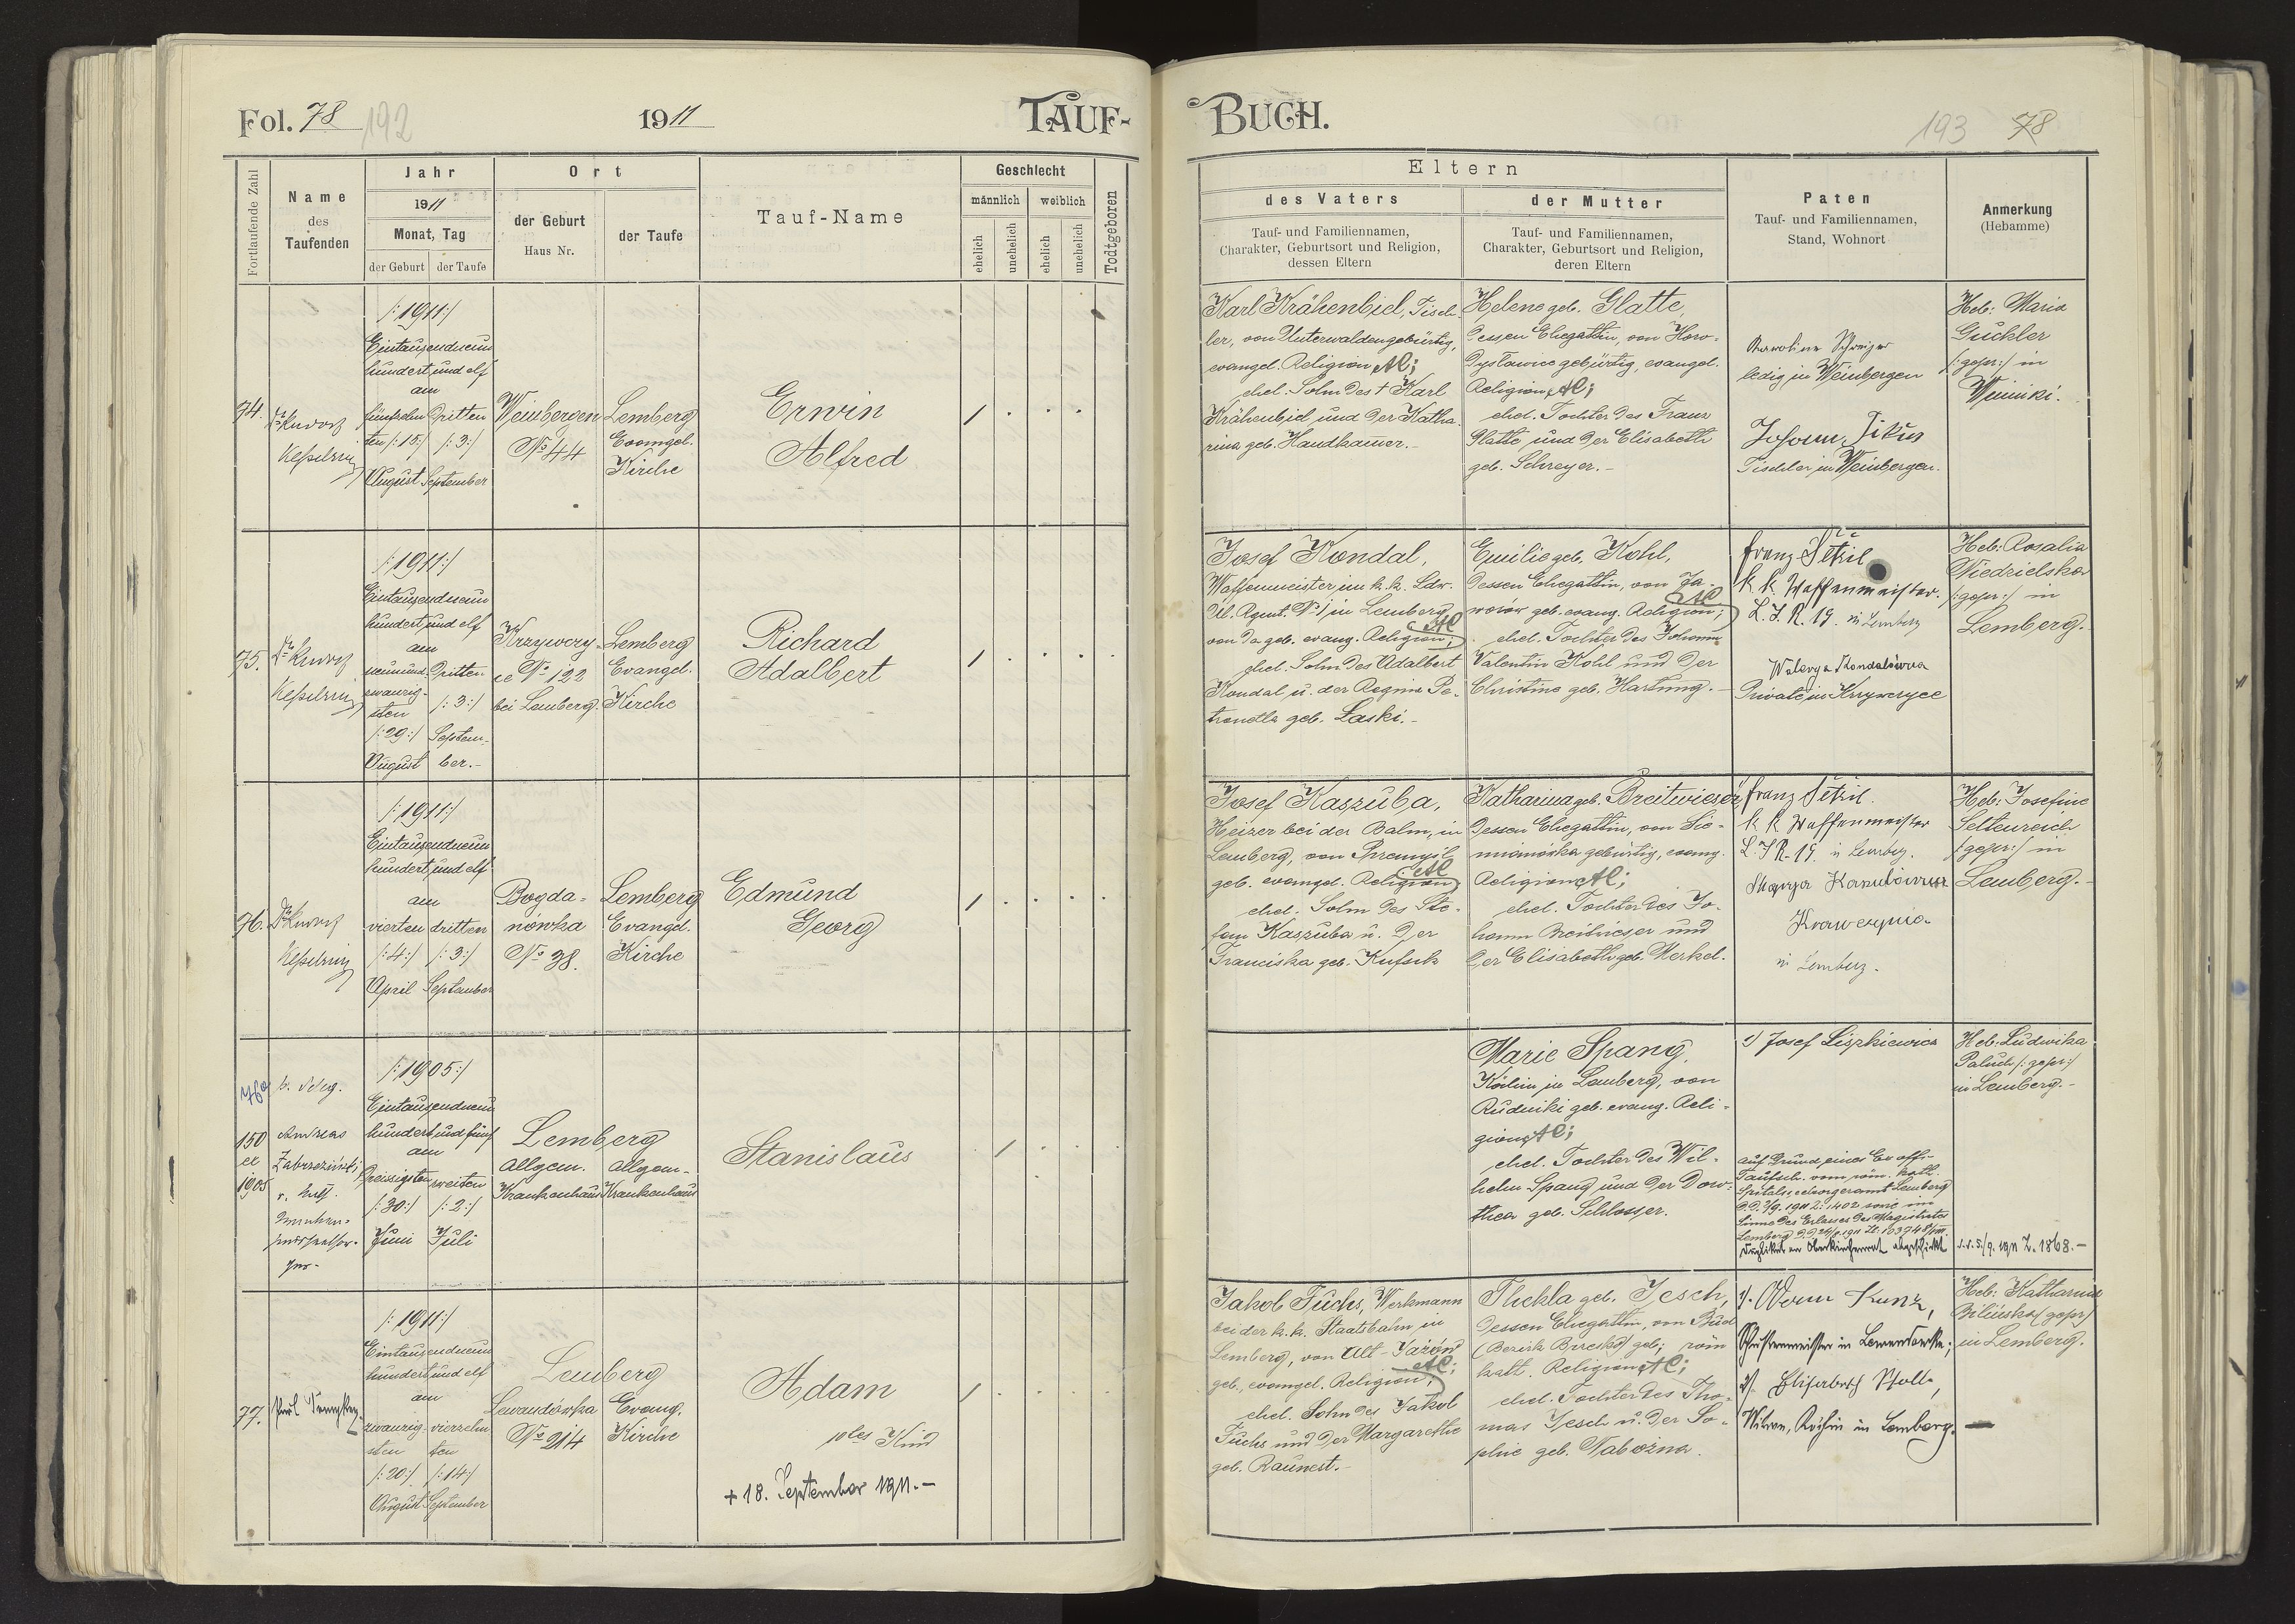 Fol. 78 192
1911
TAUF-
Fortlaufende Zahl
Name
des
Taufenden
Jahr
1911
Monat, Tag
der Geburt
der Taufe
Ort
der Geburt
Haus Nr.
der Taufe
Tauf-Name
Geschlecht
männlich
weiblich
ehelich
unehelich
ehelich
unehelich
Todtgeboren
74.
Kesselring
/:1911:/
Eintausendneun
hundert und elf
am
fünfzehn
ten /:15:/
August
Dritten
/:3:/
September
Weinbergen
No 44
Lemberg
Evangel.
Kirche
Erwin
Alfred
75.
Kesselring
/:1911:/
Eintausendneun
hundert und elf
am
neunund
zwanzig-
sten
/:29:/
August
Dritten
/:3:/
Septem-
ber.-
Krzywczy-
ce No 122
bei Lemberg.
Lemberg
Evangel.
Kirche
Richard
Adalbert
76.
Kesselring
/:1911:/
Eintausendneun
hundert und elf
am
vierten
/:4:/
April
dritten
/:3:/
September
Bogda-
nówka
No 38.
Lemberg
Evangel.
Kirche
Edmund
Georg
76a
150
ex
1905
Andreas
/:1905:/
Eintausendneun
hundert und fünf
am
Dreissigsten
/:30:/
Juni
zweiten
/:2:/
Juli
Lemberg
Allgem.
Krankenhaus
Allgem-
Krankenhaus
Stanislaus
77.
Paul
/:1911:/
Eintausendneun
hundert und elf
am
zwanzig-
sten
/:20:/
August
vierzehn
ten
/:14:/
September
Lemberg
Lewandówka
No 214
Evang.
Kirche
Adam
Kind
+ 18. September 1911.-
BUCH.
193 78
Eltern
des Vaters
Tauf- und Familiennamen,
Charakter, Geburtsort und Religion,
dessen Eltern
der Mutter
Tauf- und Familiennamen,
Charakter, Geburtsort und Religion,
deren Eltern
Paten
Tauf- und Familiennamen,
Stand, Wohnort
Anmerkung
(Hebamme)
Karl Krähenbiel, Tisch-
ler, von Unterwalden gebürtig,
evangel. Religion AC;
ehel. Sohn des + Karl
Krähenbiel und der Katha-
rina geb. Handkamer.-
Helene geb. Glatte,
dessen Ehegattin, von Horo-
dyslawice gebürtig, evangel.
Religion AC;
ehel. Tochter des Franz
Glatte und der Elisabeth
geb. Schreyer.-
Karoline Schreyer
ledig in Weinbergen
Johann
Tischler in Weinbergen.
Heb: Maria
Guckler
/:gepr:/ in
Winniki.
Josef Kondal,
Waffenmeister im k. k. Ldw.
Rgmt. No 1 in Lemberg
von da geb. evang. Religion; AC
ehel. Sohn des Adalbert
Kondal u. der Regina Pe-
tronella geb. Łaski.-
Emilie geb. Kohl,
dessen Ehegattin, von Ja-
worow geb. evang. Religion; AC
ehel. Tochter des Johann
Valentin Kohl und der
Christine geb. Hartung.-
Franz Petzil
k. k. Waffenmeister.
L. I. R. 19. in Lemberg
Walerya Kondalówna
Private in Krzywczyce
Heb: Rosalia
Niedzielska
/:gepr:/ in
Lemberg.-
Josef Kaszuba,
Heizer bei der Bahn, in
Lemberg, von Przemysl
geb. evangel. Religion; AC
ehel. Sohn des Ste-
fan Kaszuba u. der
Franciska geb. Kufsik
Katharina geb. Breitwieser
dessen Ehegattin, von Sie-
mianówka gebürtig, evang.
Religion AC;
ehel. Tochter des Jo-
hann Breitwieser und
der Elisabeth geb. Merkel.
Franz Petzil.
k k Waffenmeister
L. I R. 19. in Lemberg.
Marya
in Lemberg.
Heb: Josefine
Seltenreich
/:gepr:/ in
Lemberg.-
Marie Spang,
Köchin in Lemberg, von
Rudniki geb. evang. Reli-
gion AC;
ehel. Tochter des Wil-
helm Spang und der Doro-
thea geb. Schlosser.
1) Josef Liszkiewicz
auf Grund eines Ex offi-
Taufsch. vom röm. kath.
Spitalseelsorgeramt Lemberg
1911 Z: 1402 sowie im
Sinne des Erlasses des Magistrates
Lemberg
Duplikat an Oberkirchenrat abgeschickt
5/9. 1911 Z. 1868.-
Heb: Ludwika
Paluch /:gepr:/
in Lemberg.-
Jakob Fuchs, Werkmann
bei der k. k. Staatsbahn in
Lemberg, von Alt-Jażów
geb., evangel. Religion; AC;
ehel. Sohn des Jakob
Fuchs und der Margarethe
geb. Raunest.-
Thekla geb. Jesch,
dessen Ehegattin, von
(Bezirk geb; röm
kath. Religion AC;
ehel. Tochter des Tho-
mas Jesch u. der So-
phie geb. Tabożna.
1). Adam Kunz,
Schustermeister in Lewandówka;
2). Elisabeth
Witwe, Köchin in Lemberg.
Heb: Katharina
Bilinska (gepr)
in Lemberg.